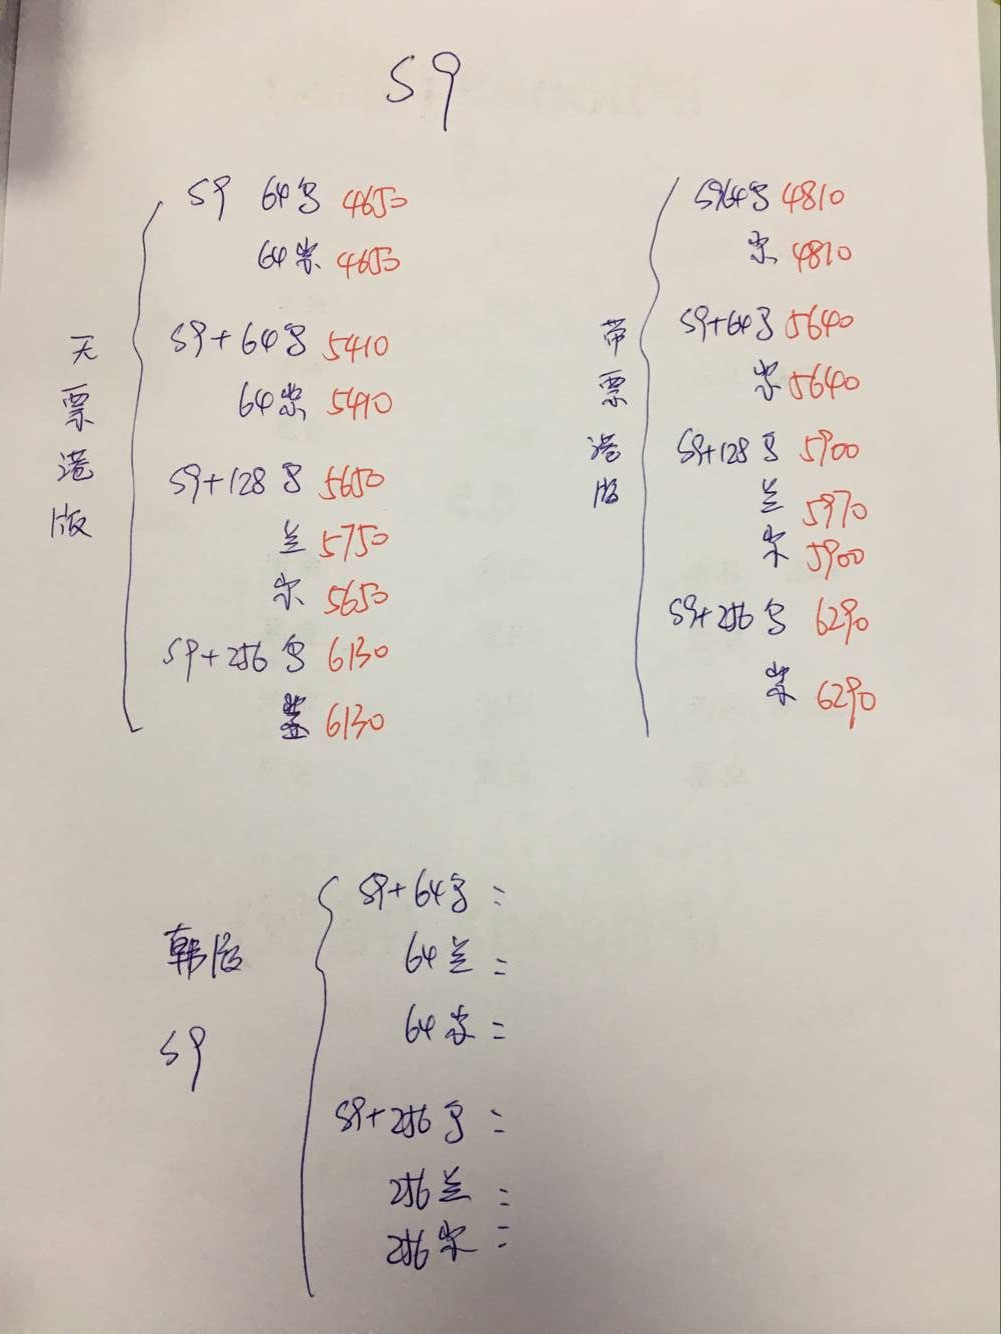 S9
无票港版
S9 64黑 4650
64紫 4650
S9+64黑 5410
64紫 5410
S9+128黑 5650
兰 5750
紫 5650
S9+256黑 6130
6130
带票港版
S964黑 4810
紫 4810
S9+64黑 5640
紫 5640
S9+128黑 5900
兰 5970
紫 5900
S9+256黑 6290
紫 6290
韩版
S9
S9+64黑=
64兰=
64紫=
S9+256黑=
256兰=
256紫=